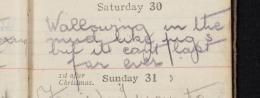 Saturday 30
Wallowing in the
mud like pigs
but it can't last
for ever
1st after
Christmas.
Sunday 31